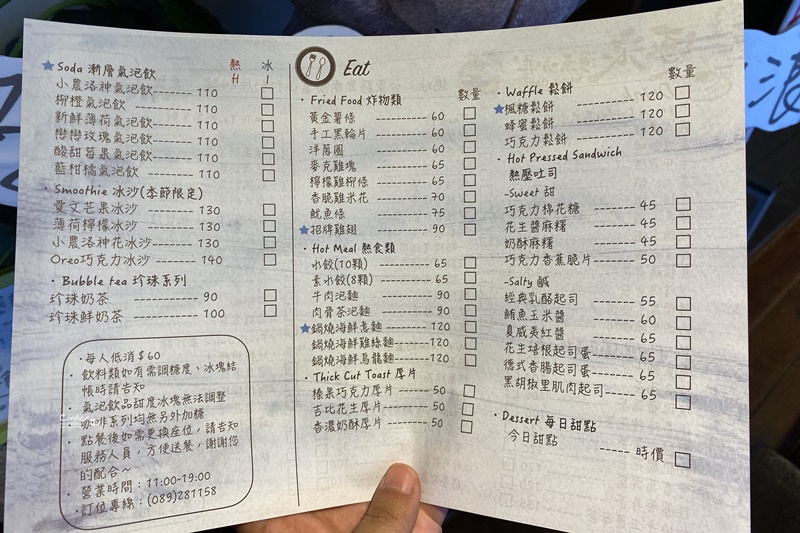 ★Soda 漸層氣泡飲 熱H 冰I
小農洛神氣泡飲------- 110
柳橙氣泡飲 ---------- 110
新鮮薄荷氣泡飲------- 110
戀戀玫瑰氣泡飲------- 110
酸甜莓果氣泡飲------- 110
藍柑橘氣泡飲--------- 110
·Smoothie 冰沙(季節限定)
愛文芒果冰沙 -------- 130
薄荷檸檬冰沙 -------- 130
小農洛神花冰沙------- 130
Oreo巧克力冰沙 ------ 140
· Bubble tea 珍珠系列
珍珠奶茶 ------------ 90
珍珠鮮奶茶 ---------- 100
·每人低消$60
· 飲料類如有需調糖度、冰塊結
帳時請告知
· 氣泡飲品甜度冰塊無法調整
· 咖啡系列均無另外加糖
· 點餐後如需更換座位，請告知
服務人員，方便送餐，謝謝您
的配合～
· 營業時間：11:00-19:00
·訂位專線：(089)281158
Eat
· Fried Food 炸物類 數量
黃金薯條 ---------- 60
手工黑輪片 -------- 60
洋蔥圈 ------------ 60
麥克雞塊 ---------- 65
檸檬雞柳條 -------- 65
香脆雞米花 -------- 70
魷魚條 ------------ 75
★招牌雞翅 ---------- 90
·Hot Meal 熱食類
水餃(10顆) -------- 65
素水餃(8顆) ------- 65
牛肉泡麵 ---------- 90
肉骨茶泡麵 -------- 90
★鍋燒海鮮意麵-------120
鍋燒海鮮雞絲麵-----120
鍋燒海鮮烏龍麵-----120
·Thick Cut Toast 厚片
榛果巧克力厚片 ---- 50
吉比花生厚片------- 50
香濃奶酥厚片 ------ 50
· Waffle 鬆餅 數量
★楓糖鬆餅 ---------- 120
蜂蜜鬆餅 ---------- 120
巧克力鬆餅 -------- 120
· Hot Pressed Sandwich
熱壓吐司
-Sweet 甜
巧克力棉花糖 ------ 45
花生醬麻糬 -------- 45
奶酥麻糬 ---------- 45
巧克力香蕉脆片----- 50
-Salty 鹹
經典乳酪起司 ------ 55
鮪魚玉米醬 -------- 60
夏威夷紅醬 -------- 65
花生培根起司蛋----- 65
德式香腸起司蛋----- 65
黑胡椒里肌肉起司--- 65
· Dessert 每日甜點
今日甜點 ----- 時價